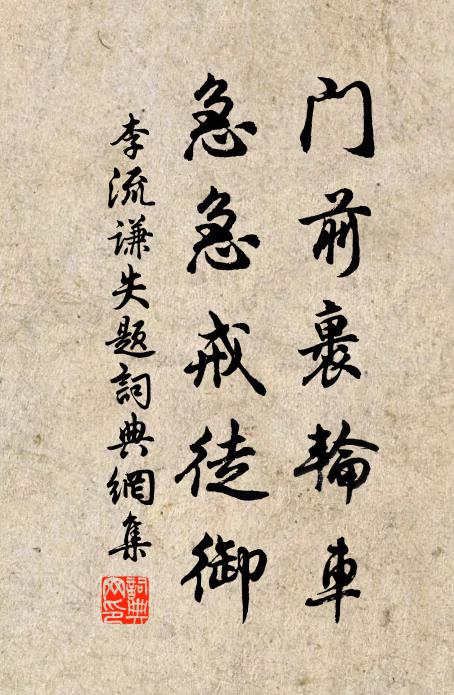 门前裹轮车
急急戒徒御
李流谦失题詞典網集
詞典网印